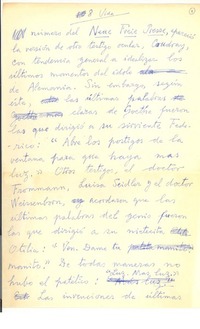 8 Vira
número del Neue Freie Presse, apareció
la versión de otro testigo ocular, Coudray,
con tendencia general a idealizar los
últimos momentos del ídolo
de Alemania. Sin embargo, según
este, las últimas palabras
claras de Goethe fueron
las que dirigió a su sirviente Fede-
rico: "Abre los postigos de la
ventana para que haya mas
luz." Otros testigos, el doctor
Frommann, Luisa Seidler y el doctor
Weissenborn, acordaron que las
últimas palabras del genio fueron
las que dirigió a su nietecita
Otilia: "Von Dame tu
manito." De todas maneras no
hubo el patético: "Luz, Mas luz."
Las invenciones de últimas